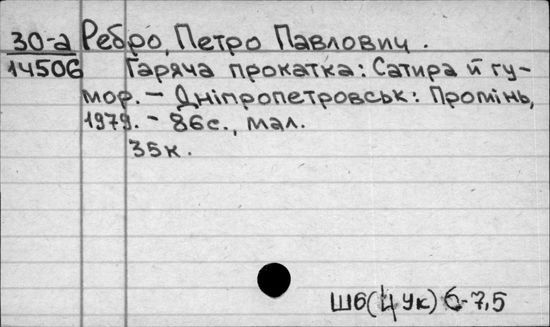 30-а Ребро, Петро Павлович.
14506 Гаряча прокатка: Сатира й гу-
мор. – Дніпропетровськ: Промінь,
1979. – 86с., мал.
35к.
Ш6(4Ук)6-7,5